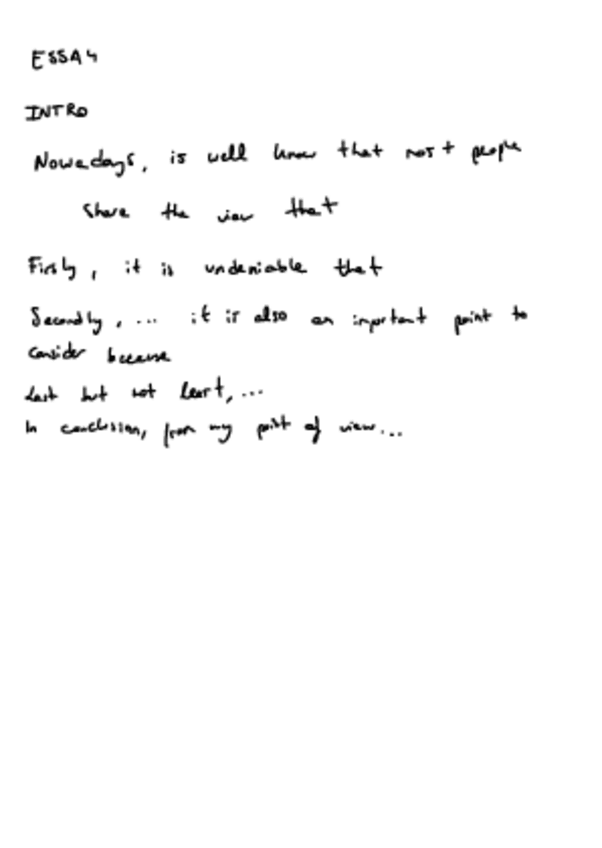 ESSAY
INTRO
Nowadays, is well know that most people
share the view that
Firstly, it is undeniable that
Secondly, ... it is also an important point to
consider because
Last but not least, ...
In conclusion, from my point of view...